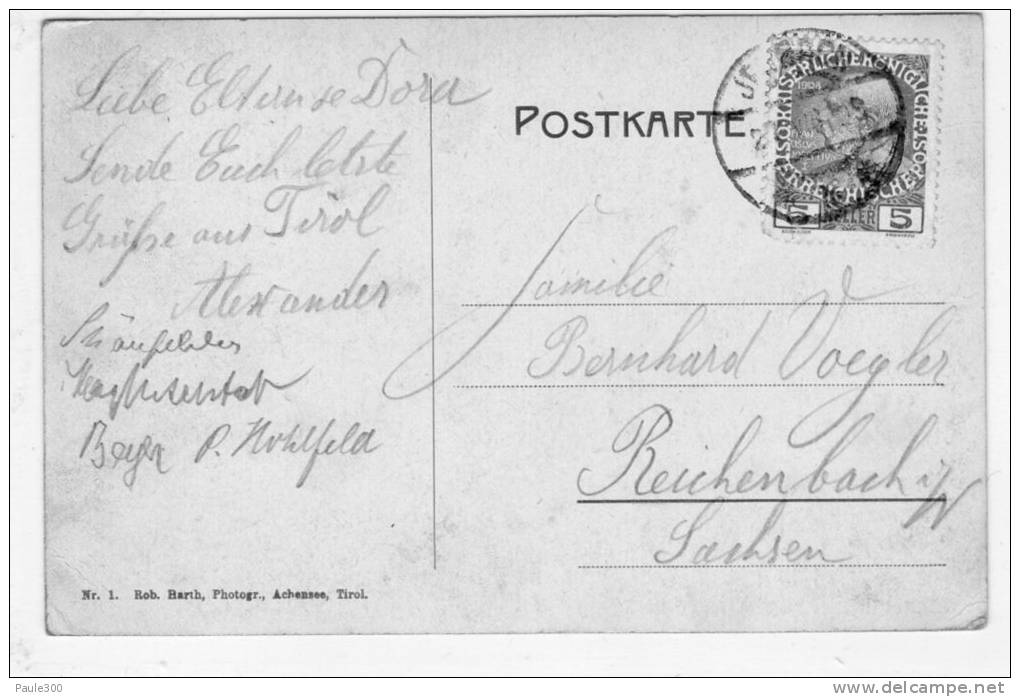 Liebe Eltern u Dora
Sende Euch letzte
Grüße aus Tirol
Alexander
P. Hohlfeld
POSTKARTE
1908
5 HELLER 5
Familie
Bernhard Voegler
Reichenbach i/V
Sachsen
Nr. 1. Rob. Harth, Photogr., Achensee, Tirol.
Paule300
delcampe.net